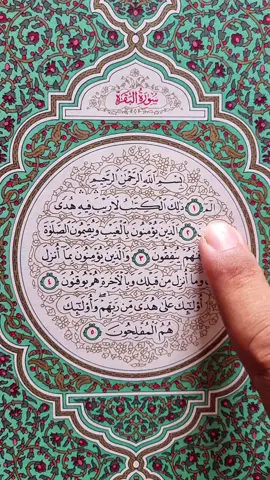 سُورَةُ البَقَرَةِ
بِسْمِ اللَّهِ الرَّحْمَٰنِ الرَّحِيمِ
الٓمٓ ١ ذَٰلِكَ الْكِتَابُ لَا رَيْبَ فِيهِ هُدًى
٢ الَّذِينَ يُؤْمِنُونَ بِالْغَيْبِ وَيُقِيمُونَ الصَّلَوٰةَ
يُنفِقُونَ ٣ وَالَّذِينَ يُؤْمِنُونَ بِمَا أُنزِلَ
وَمَا أُنزِلَ مِن قَبْلِكَ وَبِالْآخِرَةِ هُمْ يُوقِنُونَ ٤
أُولَٰئِكَ عَلَىٰ هُدًى مِّن رَّبِّهِمْ وَأُولَٰئِكَ
هُمُ الْمُفْلِحُونَ ٥